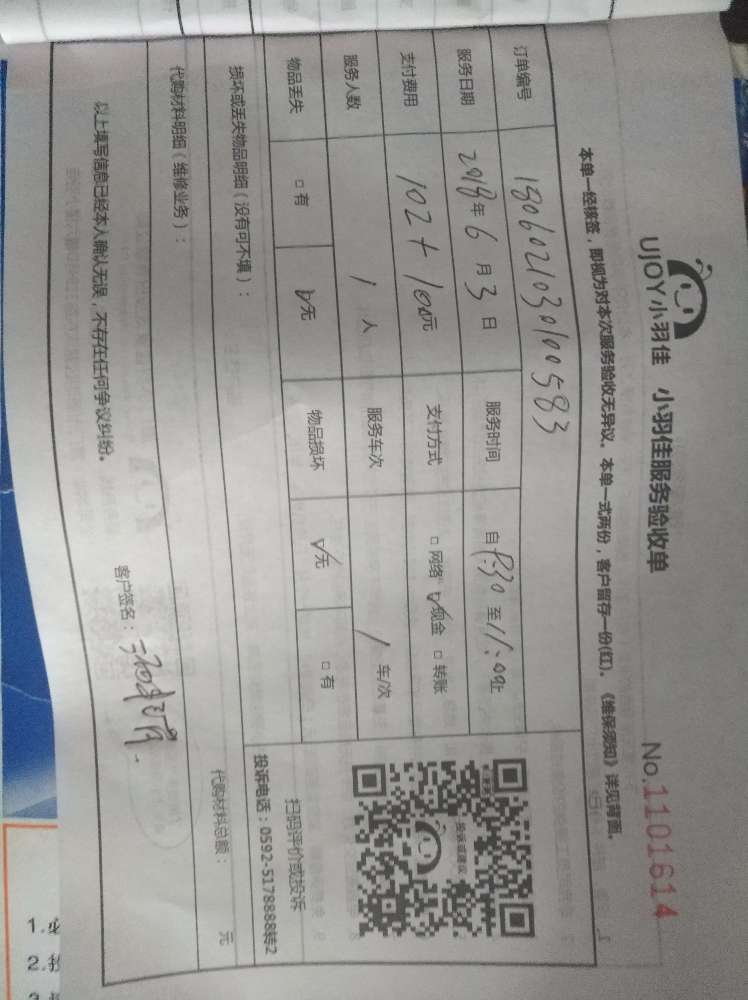 UJOY小羽佳 小羽佳服务验收单 No.1101614
本单一经核签，即视为对本次服务验收无异议。本单一式两份，客户留存一份(红)。《维保须知》详见背面。
订单编号 1806021030100583
服务日期 2018年 6 月 3 日 服务时间 自 9:30 至 11:00止
支付费用 102+100元 支付方式 □网络 ☑现金 □转账
服务人数 1 人 服务车次 1 车/次
物品丢失 □有 ☑无 物品损坏 ☑无 □有
投诉或建议
扫码评价或投诉
投诉电话：0592-5178888转2
损坏或丢失物品明细（没有可不填）：
代购材料明细（维修业务）： 代购材料总额： 元
以上填写信息已经本人确认无误，不存在任何争议纠纷。
客户签名：
1.必
2.
3